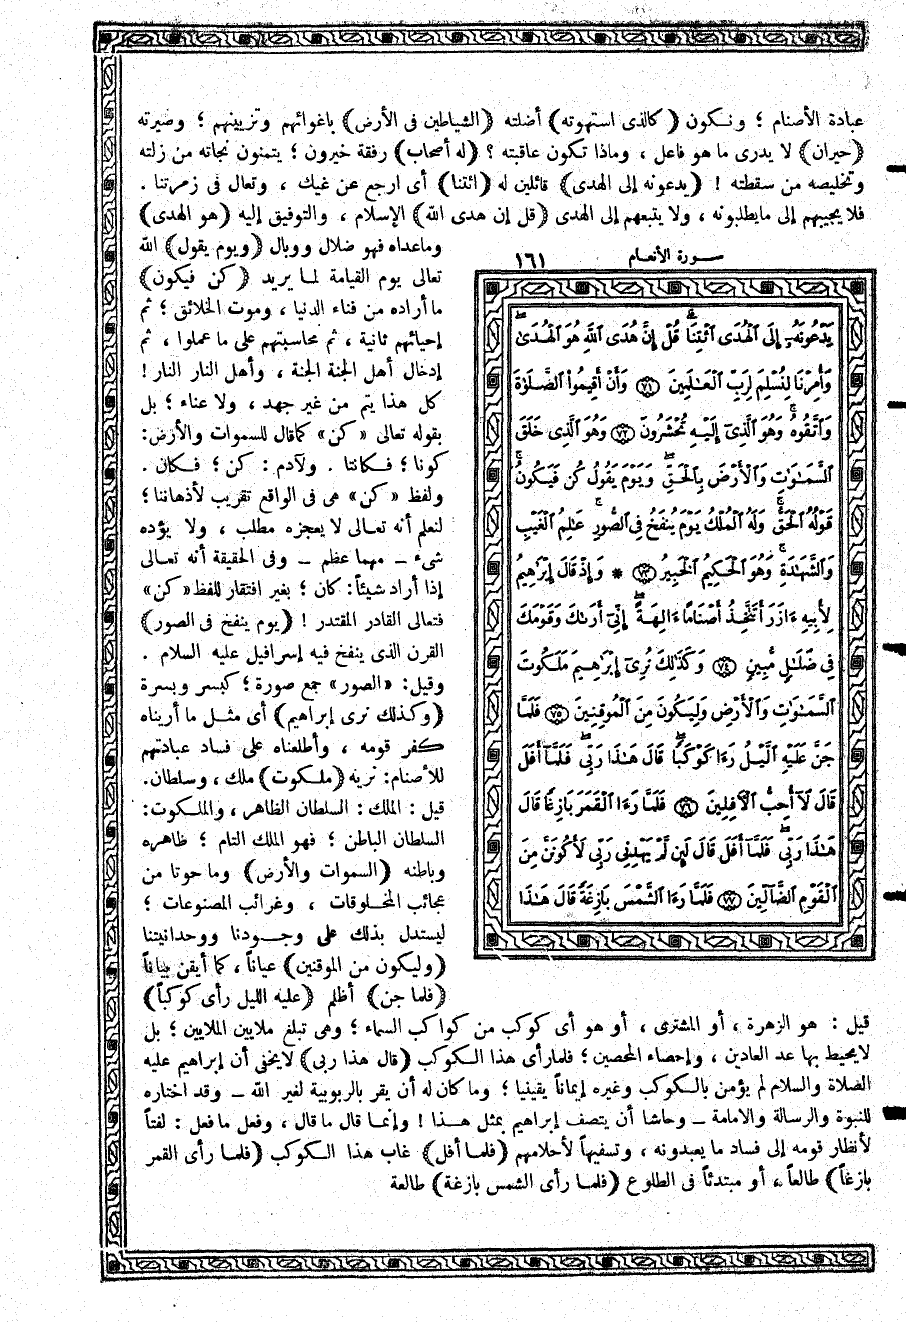 عبادة الأصنام ؛ ونكون (كالذى استهوته) أضلته (الشياطين فى الأرض) باغوائهم وتزيينهم ؛ وصيرته
(حيران) لا يدرى ما هو فاعل ، وماذا تكون عاقبته ؟ (له أصحاب) رفقة خيرون ؛ يتمنون نجاته من زلته
وتخليصه من سقطته ! (يدعونه إلى الهدى) قائلين له (ائتنا) أى ارجع عن غيك ، وتعال فى زمرتنا .
فلا يجيبهم إلى مايطلبونه ، ولا يتبعهم إلى الهدى (قل إن هدى الله) الإسلام ، والتوفيق إليه (هو الهدى)
وماعداه فهو ضلال ووبال (ويوم يقول) الله
تعالى يوم القيامة لما يريد (كن فيكون)
ما أراده من فناء الدنيا ، وموت الخلائق ؛ ثم
إحيائهم ثانية ، ثم محاسبتهم على ما عملوا ، ثم
إدخال أهل الجنة الجنة ، وأهل النار النار !
كل هذا يتم من غير جهد ، ولا عناء ؛ بل
بقوله تعالى «كن» كماقال للسموات والأرض:
كونا ؛ فكانتا . ولآدم : كن ؛ فكان .
ولفظ «كن» هى فى الواقع تقريب لأذهاننا ؛
لنعلم أنه تعالى لا يعجزه مطلب ، ولا يؤده
شىء ــ مهما عظم ــ وفى الحقيقة أنه تعالى
إذا أراد شيئاً: كان ؛ بغير افتقار للفظ «كن»
فتعالى القادر المقتدر ! (يوم ينفخ فى الصور)
القرن الذى ينفخ فيه إسرافيل عليه السلام .
وقيل: «الصور» جمع صورة ؛ كبسر وبسرة
(وكذلك نرى إبراهيم) أى مثل ما أريناه
كفر قومه ، وأطلعناه على فساد عبادتهم
للأصنام: نريه (ملكوت) ملك ، وسلطان.
قيل : الملك : السلطان الظاهر ، والملكوت:
السلطان الباطن ؛ فهو الملك التام ؛ ظاهره
وباطنه (السموات والأرض) وما حوتا من
عجائب المخلوقات ، وغرائب المصنوعات ؛
ليستدل بذلك على وجودنا ووحدانيتنا
(وليكون من الموقنين) عياناً ، كما أيقن بياناً
(فلما جن) أظلم (عليه الليل رأى كوكباً)
سورة الأنعام ١٦١
يَدْعُونَهُۥٓ إِلَى ٱلْهُدَى ٱئْتِنَا ۗ قُلْ إِنَّ هُدَى ٱللَّهِ هُوَ ٱلْهُدَىٰ ۖ
وَأُمِرْنَا لِنُسْلِمَ لِرَبِّ ٱلْعَـٰلَمِينَ ٧١ وَأَنْ أَقِيمُوا۟ ٱلصَّلَوٰةَ
وَٱتَّقُوهُ ۚ وَهُوَ ٱلَّذِىٓ إِلَيْهِ تُحْشَرُونَ ٧٢ وَهُوَ ٱلَّذِى خَلَقَ
ٱلسَّمَـٰوَٰتِ وَٱلْأَرْضَ بِٱلْحَقِّ ۖ وَيَوْمَ يَقُولُ كُن فَيَكُونُ ۚ
قَوْلُهُ ٱلْحَقُّ ۚ وَلَهُ ٱلْمُلْكُ يَوْمَ يُنفَخُ فِى ٱلصُّورِ ۚ عَـٰلِمُ ٱلْغَيْبِ
وَٱلشَّهَـٰدَةِ ۚ وَهُوَ ٱلْحَكِيمُ ٱلْخَبِيرُ ٧٣ * وَإِذْ قَالَ إِبْرَٰهِيمُ
لِأَبِيهِ ءَازَرَ أَتَتَّخِذُ أَصْنَامًا ءَالِهَةً ۖ إِنِّىٓ أَرَىٰكَ وَقَوْمَكَ
فِى ضَلَـٰلٍ مُّبِينٍ ٧٤ وَكَذَٰلِكَ نُرِىٓ إِبْرَٰهِيمَ مَلَكُوتَ
ٱلسَّمَـٰوَٰتِ وَٱلْأَرْضِ وَلِيَكُونَ مِنَ ٱلْمُوقِنِينَ ٧٥ فَلَمَّا
جَنَّ عَلَيْهِ ٱلَّيْلُ رَءَا كَوْكَبًا ۖ قَالَ هَـٰذَا رَبِّى ۖ فَلَمَّآ أَفَلَ
قَالَ لَآ أُحِبُّ ٱلْـَٔافِلِينَ ٧٦ فَلَمَّا رَءَا ٱلْقَمَرَ بَازِغًا قَالَ
هَـٰذَا رَبِّى ۖ فَلَمَّآ أَفَلَ قَالَ لَئِن لَّمْ يَهْدِنِى رَبِّى لَأَكُونَنَّ مِنَ
ٱلْقَوْمِ ٱلضَّآلِّينَ ٧٧ فَلَمَّا رَءَا ٱلشَّمْسَ بَازِغَةً قَالَ هَـٰذَا
قيل : هو الزهرة ، أو المشترى ، أو هو أى كوكب من كواكب السماء ؛ وهى تبلغ ملايين الملايين ؛ بل
لايحيط بها عد العادين ، وإحصاء المحصين ؛ فلمارأى هذا الكوكب (قال هذا ربى) لايخفى أن إبراهيم عليه
الصلاة والسلام لم يؤمن بالكوكب وغيره إيماناً يقينيا ؛ وما كان له أن يقر بالربوبية لغير الله ــ وقد اختاره
للنبوة والرسالة والامامة ــ وحاشا أن يتصف إبراهيم بمثل هذا ! وإنما قال ما قال ، وفعل ما فعل : لفتاً
لأنظار قومه إلى فساد ما يعبدونه ، وتسفيهاً لأحلامهم (فلما أفل) غاب هذا الكوكب (فلما رأى القمر
بازغاً) طالعاً ، أو مبتدئاً فى الطلوع (فلما رأى الشمس بازغة) طالعة